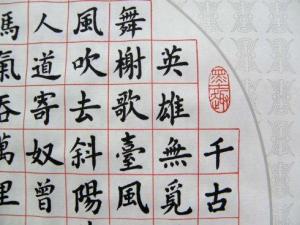 千古
英雄無覓
舞榭歌臺風
風吹去斜陽
人道寄奴曾
馬氣吞萬里